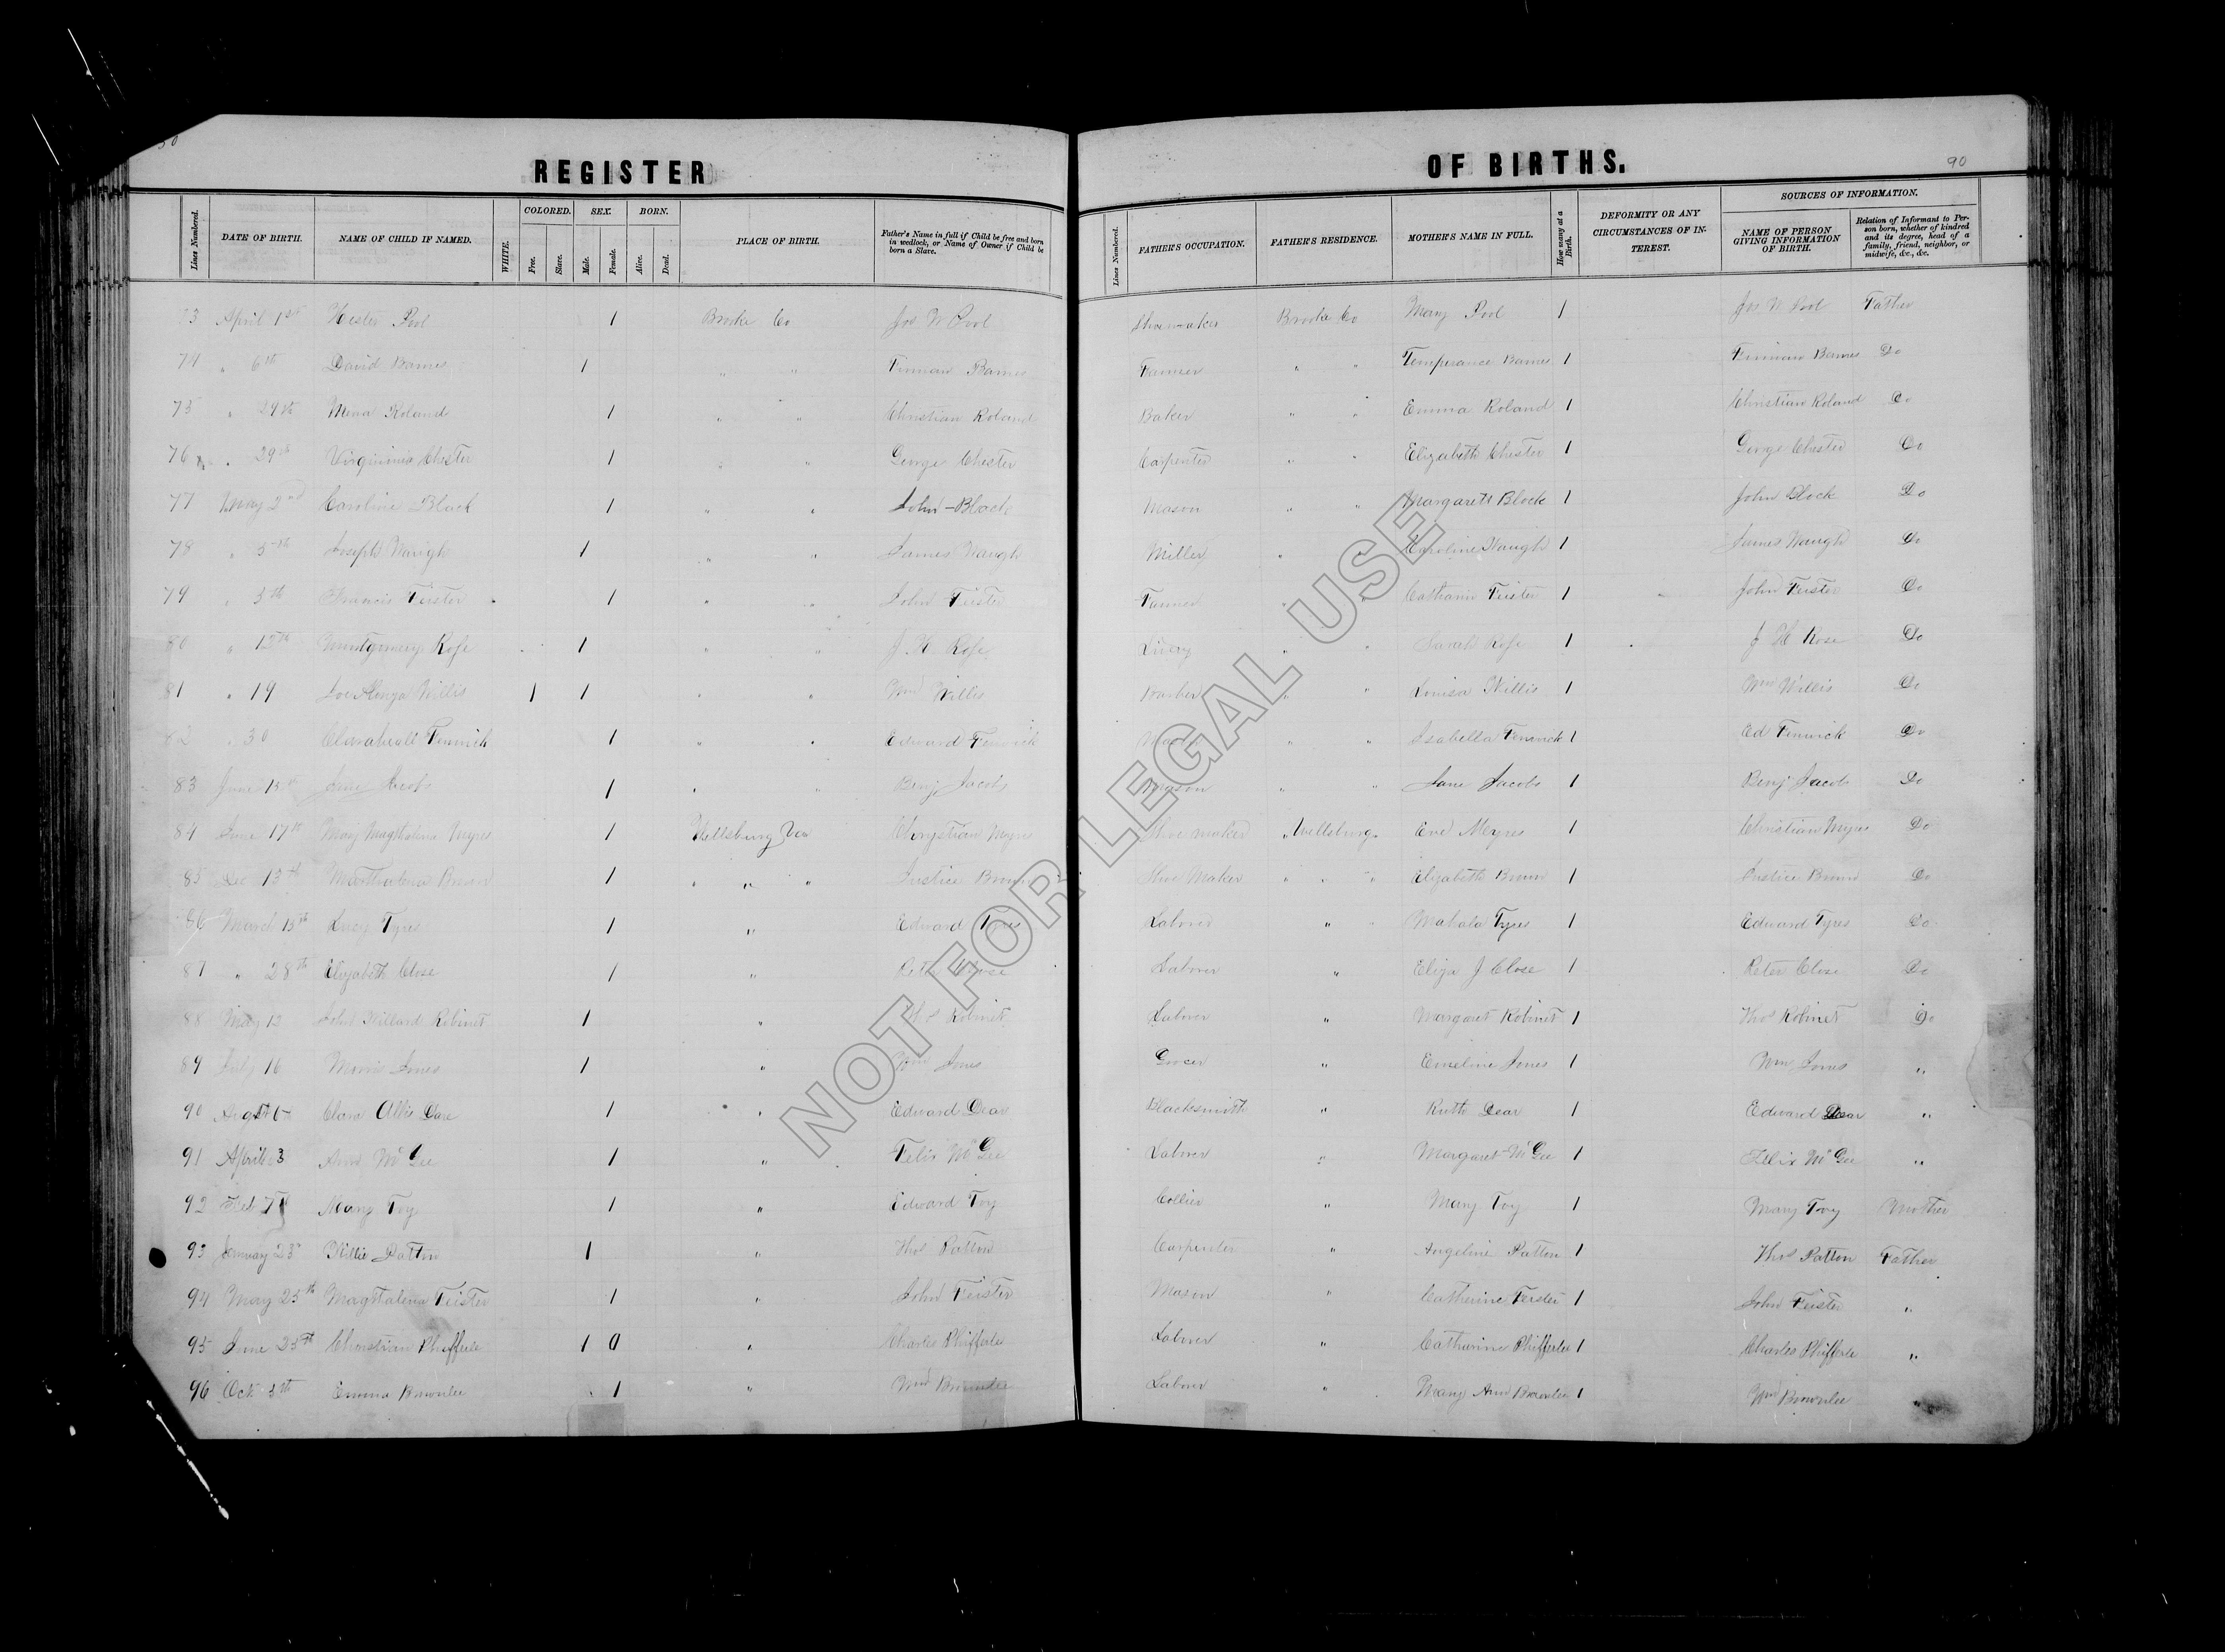 90
REGISTER OF BIRTHS.
Lines Numbered. DATE OF BIRTH. NAME OF CHILD IF NAMED. WHITE. COLORED. Free. Slave. SEX. Male. Female. BORN. Alive. Dead. PLACE OF BIRTH. Father's Name in full if Child be free and born in wedlock, or Name of Owner if Child be born a Slave. Lines Numbered. FATHER'S OCCUPATION. FATHER'S RESIDENCE. MOTHER'S NAME IN FULL. How many at a Birth. DEFORMITY OR ANY CIRCUMSTANCES OF INTEREST. SOURCES OF INFORMATION. NAME OF PERSON GIVING INFORMATION OF BIRTH. Relation of Informant to Person born, whether of kindred and its degree, head of a family, friend, neighbor, or midwife, &c., &c.
73 April 1st Hester Pool 1 Brooke Co Jos W Pool Shoemaker Brooke Co Mary Pool 1 Jos W Pool Father
74 " 6th David Barnes 1 " " Barnes " " Temperance Barnes 1 Barnes Do
75 " 29th Roland 1 " " Christian Roland Baker " " Emma Roland 1 Christian Roland Do
76 " 29th Chester 1 " " George Chester Carpenter " " Elizabeth Chester 1 George Chester Do
77 May 2nd Caroline Block 1 " " John Block Mason " " Margarett Block 1 John Block Do
78 " 5th Joseph Waugh 1 " " James Waugh Miller " Caroline Waugh 1 James Waugh Do
79 " 3th Francis Feister 1 " " John Feister " " Feister 1 John Feister Do
80 " 12th Rose 1 " " J H Rose Livery " " Sarah Rose 1 J H Rose Do
81 " 19 Willis 1 1 " " Wm Willis Barber " " Louisa Willis 1 Wm Willis Do
82 " 30 Fenwick 1 " " Edward Fenwick " " Isabella Fenwick 1 Ed Fenwick Do
83 June 15th Jane Jacobs 1 " " Benj Jacobs Mason " " Jane Jacobs 1 Benj Jacobs Do
84 June 17th Mary Magthalena Myres 1 Wellsburg Va Chrystian Myres Shoe maker " Wellsburg " Eve Meyres 1 Christian Myres Do
85 Dec 13th Marthalena Brown 1 " " " Justice Brown Shoe Maker " " " Elizabeth Brown 1 Justice Brown Do
86 March 15th Lucy Tyres 1 " Edward Tyres Laborer " Mahala Tyres 1 Edward Tyres Do
87 " 28th Elizabeth Close 1 " Peter Close Laborer " Eliza J Close 1 Peter Close Do
88 May 12 John Willard Robinet 1 " Thos Robinet Laborer " Margaret Robinet 1 Thos Robinet Do
89 July 16 Morris Jones 1 " Wm Jones Grocer " Emeline Jones 1 Wm Jones "
90 Clara 1 " Edward Dear Blacksmith " Ruth Dear 1 Edward Dear "
91 April 23 Ann McGee 1 " Felix McGee Laborer " Margaret McGee 1 Felix McGee "
92 Feb Mary Toy 1 " Edward Toy Collier " Mary Toy 1 Mary Toy Mother
93 January 23 Willie Patton 1 " Thos Patton Carpenter " Angeline Patton 1 Thos Patton Father
94 May 25th Magthalena Feister 1 " John Feister Mason " Catherine Feister 1 John Feister "
95 June 25th Christian Phifferle 1 0 " Charles Phifferle Laborer " Catharine Phifferle 1 Charles Phifferle "
96 Oct 3th Emma Brownlee 1 " Wm Brownlee Laborer " Mary Ann Brownlee 1 Wm Brownlee "
NOT FOR LEGAL USE